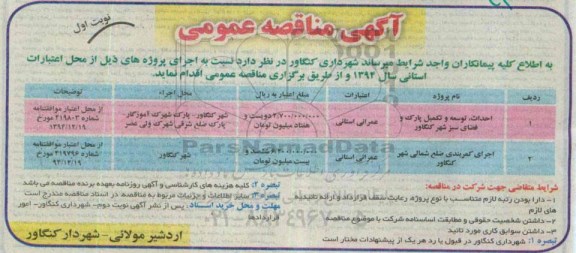 آگهی مناقصه عمومی
نوبت اول
به اطلاع کلیه پیمانکاران واجد شرایط میرساند شهرداری کنگاور در نظر دارد نسبت به اجرای پروژه های ذیل از محل اعتبارات
استانی سال ۱۳۹۲ و از طریق برگزاری مناقصه عمومی اقدام نماید.
ردیف نام پروژه اعتبارات مبلغ اعتبار به ریال محل اجراء توضیحات
۱ احداث، توسعه و تکمیل پارک و فضای سبز شهر کنگاور عمرانی استانی ۲/۷۰۰/۰۰۰/۰۰۰ دویست و هفتاد میلیون تومان شهر کنگاور- پارک شهرک آموزگار پارک ضلع شرقی شهرک ولی عصر از محل اعتبار موافقتنامه شماره ۲۱۹۸۰۳ مورخ ۱۳۹۲/۱۲/۱۹
۲ اجرای کمربندی ضلع شمالی شهر کنگاور عمرانی استانی بیست میلیون تومان شهر کنگاور از محل اعتبار موافقتنامه شماره ۲۱۹۷۹۶ مورخ ۹۲/۱۲/۱۹
ParsNamadData
۰۲۱-۸۸۳۴۹۶۷۰
شرایط متقاضی جهت شرکت در مناقصه:
۱- دارا بودن رتبه لازم متناسب با نوع پروژه رعایت سقف قرارداد و ارائه تائیدیه
های لازم
۲- داشتن شخصیت حقوقی و مطابقت اساسنامه شرکت با موضوع مناقصه
۳- داشتن سوابق کاری مورد تائید
تبصره ۱: شهرداری کنگاور در قبول یا رد هر یک از پیشنهادات مختار است
تبصره ۲: کلیه هزینه های کارشناسی و آگهی روزنامه بعهده برنده مناقصه می باشد
تبصره ۳: سایر اطلاعات و جزئیات مربوط به مناقصه، در اسناد مناقصه مندرج است
مهلت و محل خرید اسناد: پس از نشر آگهی نوبت دوم- شهرداری کنگاور- امور
قراردادها
اردشیر مولائی- شهردار کنگاور